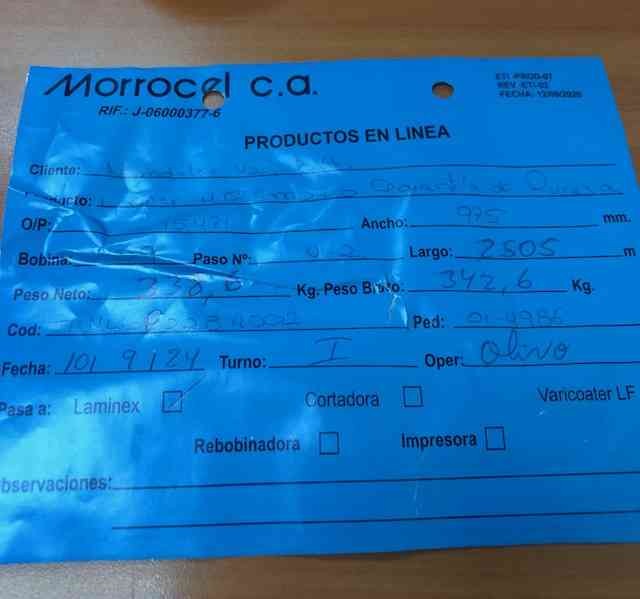 Morrocel c.a.
RIF.: J-06000377-6
ETI-PROD-01
REV-ETI-02
FECHA: 12/08/2020
PRODUCTOS EN LINEA
Cliente:
Garantía de Pureza
O/P: 15471 Ancho: 975 mm.
Bobina Paso Nº: 02 Largo: 2505 m
Peso Neto: 330,6 Kg. Peso Bruto: 342,6 Kg.
Cod: Ped: 01-4986
Fecha: 10/9/24 Turno: I Oper: Olivo
Pasa a: Laminex Cortadora Varicoater LF
Rebobinadora Impresora
bservaciones: